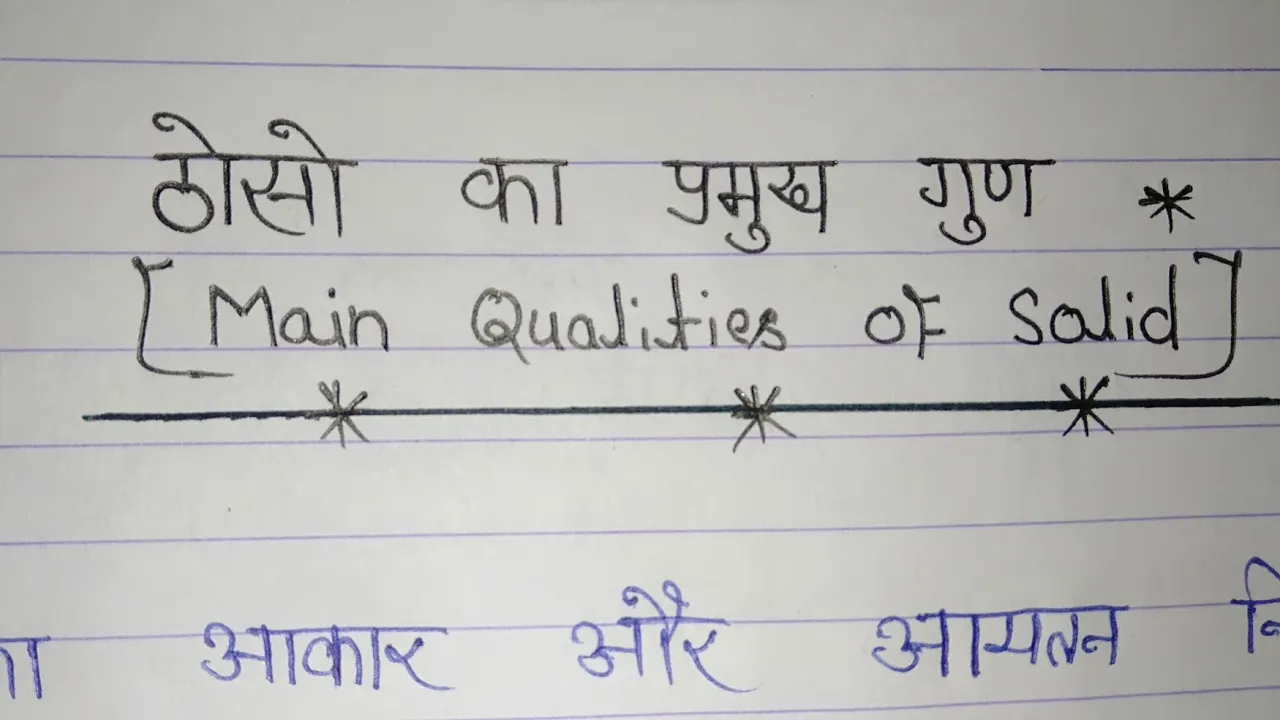 ठोसो का प्रमुख गुण *
[Main Qualities of Solid]
आकार और आयतन